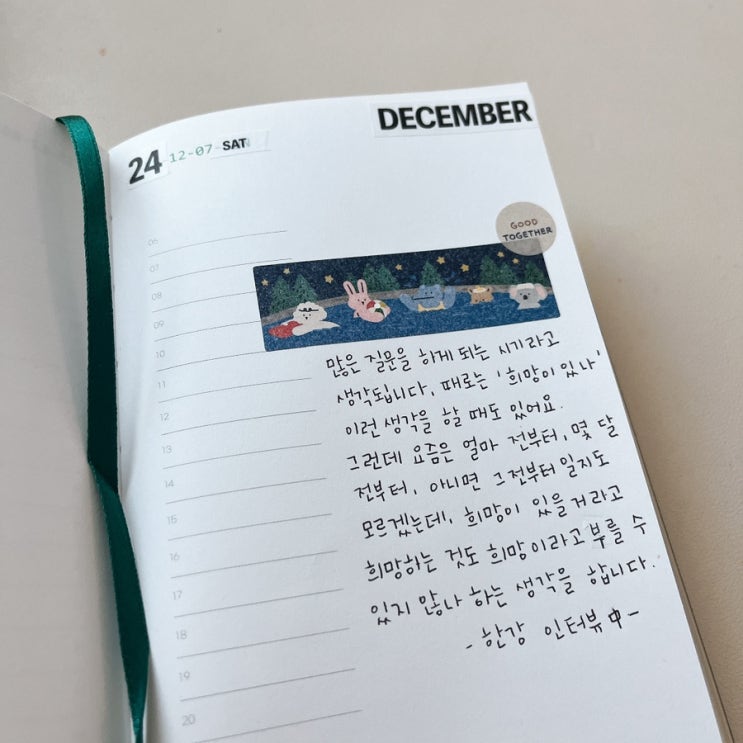 DECEMBER
24 12-07-SAT
GOOD
TOGETHER
06
07
08
09
10
11
12
13
14
15
16
17
18
19
20
많은 질문을 하게 되는 시기라고
생각됩니다. 때로는 '희망이 있나'
이런 생각을 할 때도 있어요.
그런데 요즘은 얼마 전부터, 몇 달
전부터, 아니면 그전부터일지도
모르겠는데, 희망이 있을거라고
희망하는 것도 희망이라고 부를 수
있지 않나 하는 생각을 합니다.
- 한강 인터뷰 中 -